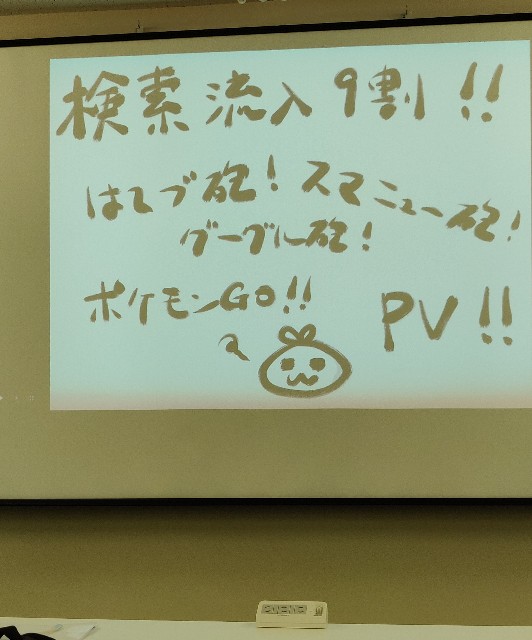 検索流入9割!!
はてブ砲! スマニュー砲!
グーグル砲!
ポケモンGO!! PV!!